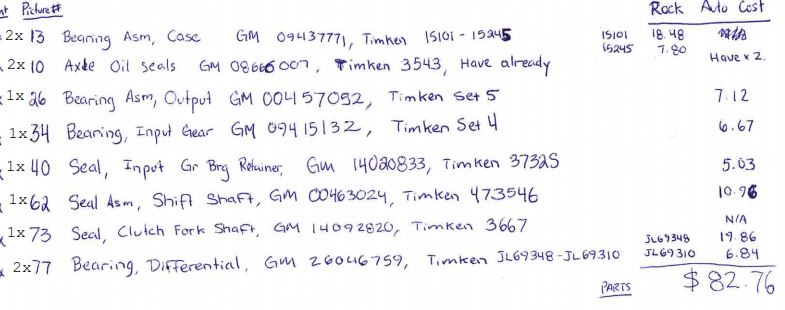 nt Picture# Rock Auto Cost
2x 13 Bearing Asm, Case GM 09437771, Timken 15101 - 15245 15101 18.48
15245 7.80
2x 10 Axle Oil seals GM 08666007, Timken 3543, Have already Have x 2.
1x 26 Bearing Asm, Output GM 00457052, Timken Set 5 7.12
1x 34 Bearing, Input Gear GM 09415132, Timken Set 4 6.67
1x 40 Seal, Input Gr Brg Retainer, GM 14020833, Timken 3732S 5.03
1x 62 Seal Asm, Shift Shaft, GM 00463024, Timken 473546 10.96
1x 73 Seal, Clutch Fork Shaft, GM 14092820, Timken 3667 N/A
JL69348 19.86
2x 77 Bearing, Differential, GM 26046759, Timken JL69348-JL69310 JL69310 6.84
PARTS $82.76